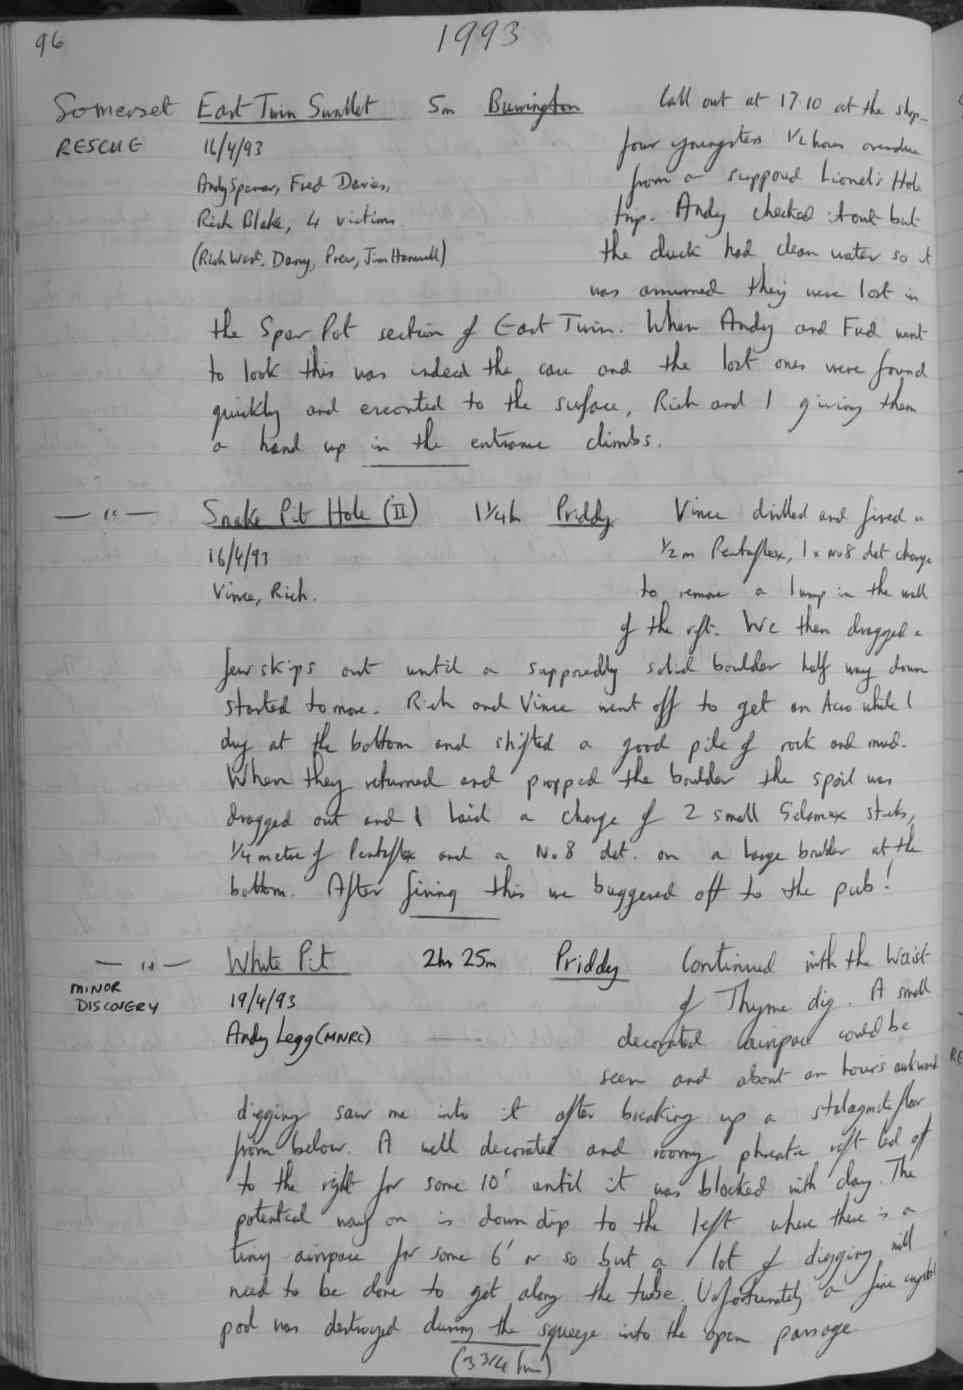 96
1993
Somerset East Twin Swallet 5m Burrington Call out at 17.10 at the shop -
RESCUE 16/4/93 four youngsters 1/2 hour overdue
from a supposed Lionel's Hole
Andy Sparrow, Fred Davies,
Rich Blake, 4 victims. trip. Andy checked it out but
(Rich West, Dany, Prew, Jim Hanwell) the duck had clean water so it
was assumed they were lost in
the Spar Pot section of East Twin. When Andy and Fred went
to look this was indeed the case and the lost ones were found
quickly and escorted to the surface, Rich and I giving them
a hand up in the entrance climbs.
— " — Snake Pit Hole (II) 1 1/4h Priddy Vince drilled and fired a
16/4/93 1/2 m Pentaflex, 1 x No 8 det charge
Vince, Rich. to remove a lump in the wall
of the rift. We then dragged a
few skips out until a supposedly solid boulder half way down
started to move. Rich and Vince went off to get an Acro while I
dug at the bottom and shifted a good pile of rock and mud.
When they returned and propped the boulder the spoil was
dragged out and I laid a charge of 2 small Gelamex sticks,
1/4 metre of Pentaflex and a No 8 det. on a large boulder at the
bottom. After firing this we buggered off to the pub!
— " — White Pit 2hr 25m Priddy Continued with the Waist
MINOR
DISCOVERY 19/4/93 of Thyme dig. A small
Andy Legg (MNRC) decorated airspace could be
seen and about an hour's awkward
digging saw me into it after breaking up a stalagmite floor
from below. A well decorated and roomy phreatic rift led off
to the right for some 10' until it was blocked with clay. The
potential way on is down dip to the left where there is a
tiny airspace for some 6' or so but a lot of digging will
need to be done to get along the tube. Unfortunately a fine crystal
pool was destroyed during the squeeze into the open passage
(3 3/4 hrs)
RE